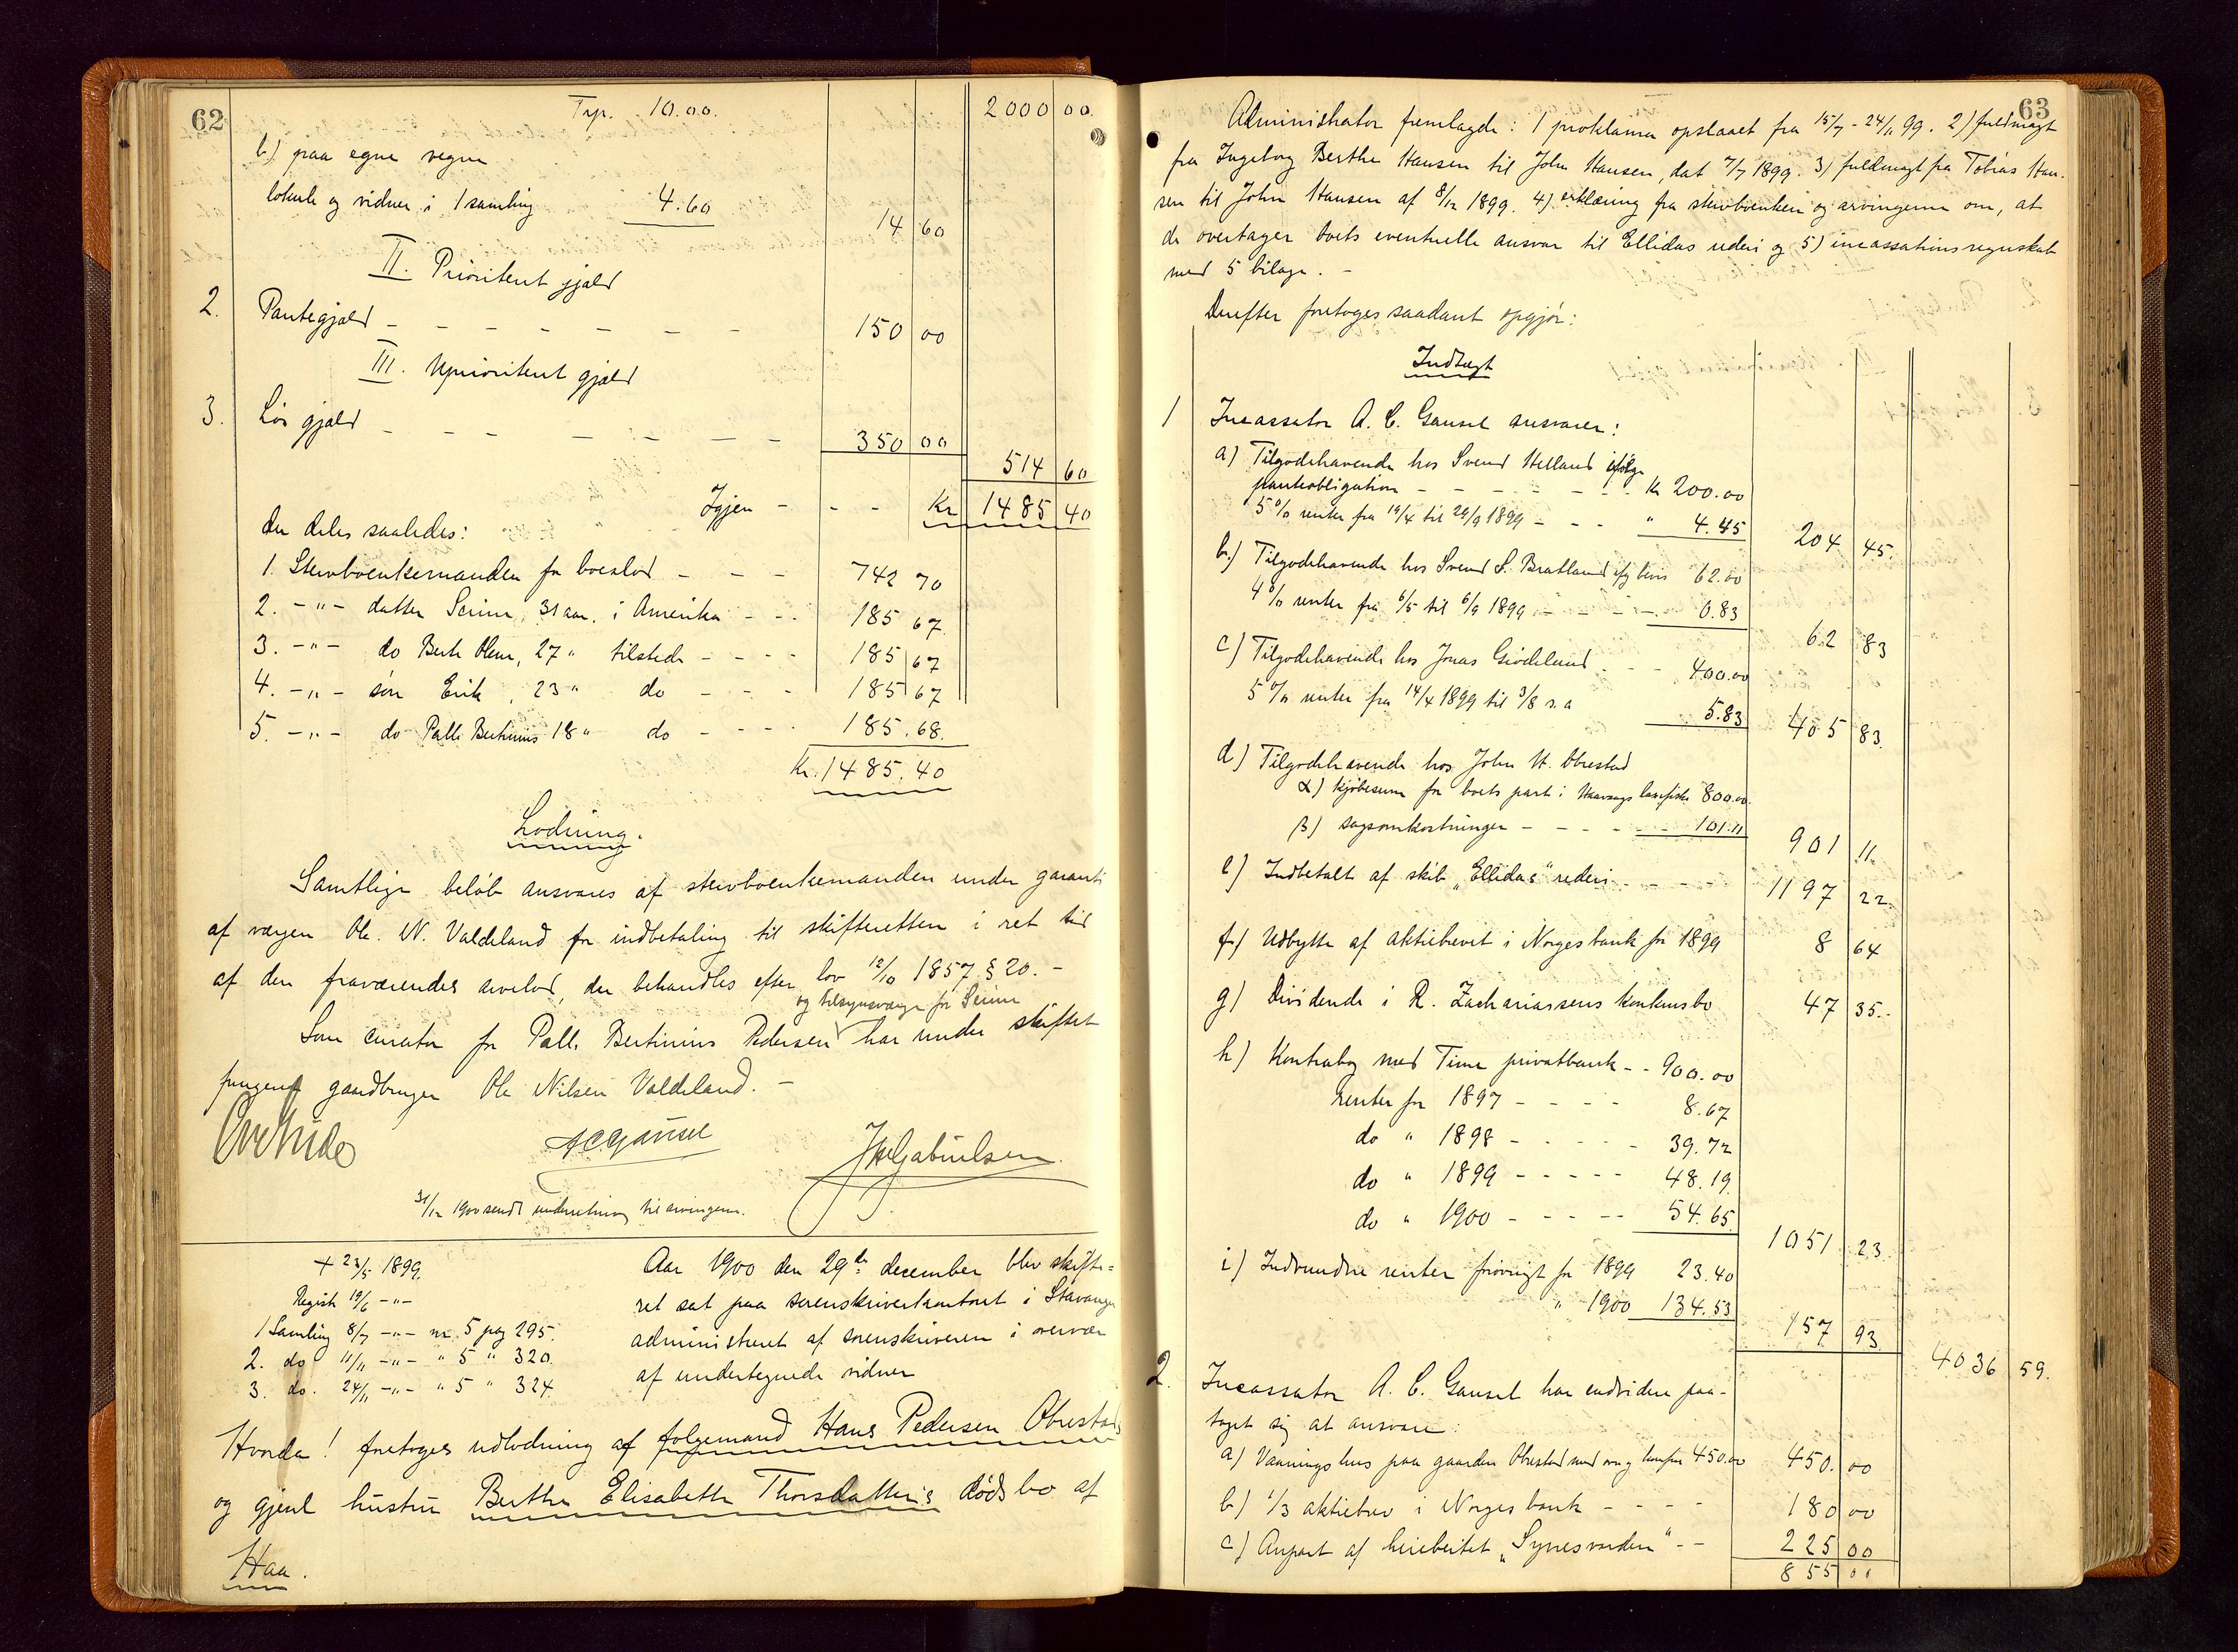 62
Trp. 10.00. 2000 00.
b) paa egne vegne
lokale og vidner i 1 samling 4.60 14 60
II. Prioriteret gjæld
2. Pantegjæld - - - - - - - 150 00
III. Uprioriteret gjæld
3. Løs gjæld - - - - - - - 350 00
514 60
Igjen - - - Kr 1485 40
der deles saaledes:
1. Stervboenkemanden for boeslod - - - 742 70
2. -"- datter Serine, 31 aar, i Amerika - - - 185 67
3. -"- do Berte Olene, 27 " tilstede - - - - 185 67
4. -"- søn Erik, 23 " do - - - 185 67
5. -"- do Palle Bertinius 18 " do - - - - 185.68.
Kr. 1485.40
Lodning.
Samtlige beløb ansvares af stervboenkemanden under garanti
af værgen Ole N. Valdeland for indbetaling til skifteretten i ret tid
af den fraværendes arvelod, der behandles efter lov 12/10 1857 § 20. -
og tilsynsværge for Serine
Som curator for Palle Bertinius Pedersen har under skiftet
fungeret gaardbruger Ole Nilsen Valdeland. -
A C Gausel
J. Gabrielsen
31/12 1900 sendt underretning til arvingerne.
+ 23/5 1899.
Registr 19/6 -"-
1 Samling 8/7 -"- nr. 5 pag 295.
2. do 11/11 -"- " 5 " 320.
3. do. 24/11 -"- " 5 " 324.
Aar 1900 den 29de december blev skifte-
ret sat paa sorenskriverkontoret i Stavanger
administreret af sorenskriveren i overvær
af undertegnede vidner
Hvorda! foretoges udlodning af følgemand Hans Pedersen Obrestads
og gjenl hustru Berthe Elisabeth Thorsdatters dødsbo af
Haa.
63
Administrator fremlagde: 1 proklama opslaaet fra 15/7 - 24/11 99. 2) fuldmagt
fra Ingeborg Berthe Hansen til John Hansen, dat 7/7 1899. 3) fuldmagt fra Tobias Han-
sen til John Hansen af 8/12 1899. 4) erklæring fra stervboenken og arvingerne om, at
de overtager boets eventuelle ansvar til Ellidas rederi og 5) incassationsregnskab
med 5 bilage. -
Derefter foretoges saadant opgjør:
Indtægt
1 Incassator A. C. Gausel ansvarer:
a) Tilgodehavende hos Svend Helland ifølge
panteobligation - - - - - - Kr 200.00
5 % renter fra 19/4 til 29/9 1899 - - - " 4.45 204 45.
b.) Tilgodehavende hos Svend S. Bratland ifg bevis 62.00
4 % renter fra 6/5 til 6/9 1899 - - - - 0.83 62 83
c) Tilgodehavende hos Jonas Grødeland - - 400.00
5 % renter fra 14/4 1899 til 3/8 s.a 5.83 405 83.
d) Tilgodehavende hos John H. Obrestad
α) kjøbesum for boets part i laxefiske 800.00.
β) sagsomkostninger - - - - 101.11 901 11.
e) Indbetalt af skib "Ellidas" rederi - - - - - 1197 22.
f) Udbytte af aktiebrevet i Norges bank for 1899 8 64
g) Dividende i R. Zachariassens konkursbo 47 35.-
h) Kontrabog med Time privatbank - - 900.00
renter for 1897 - - - - 8.67
do " 1898 - - - - - 39.72
do " 1899 - - - - - 48.19.
do " 1900 - - - - - 54.65. 1051. 23.
i) Indvundne renter forøvrigt for 1899 23.40
" 1900 134.53 157 93.
4036 59.
2. Incassator A. C. Gausel har endvidere paa-
taget sig at ansvare:
a) Vaaningshus paa gaarden Obrestad med ovn og komfur 450.00 450. 00
b) 1/3 aktiebrev i Norges bank - - - - 180 00
c) Anpart af "Synesvarden" - - 225 00
855 00